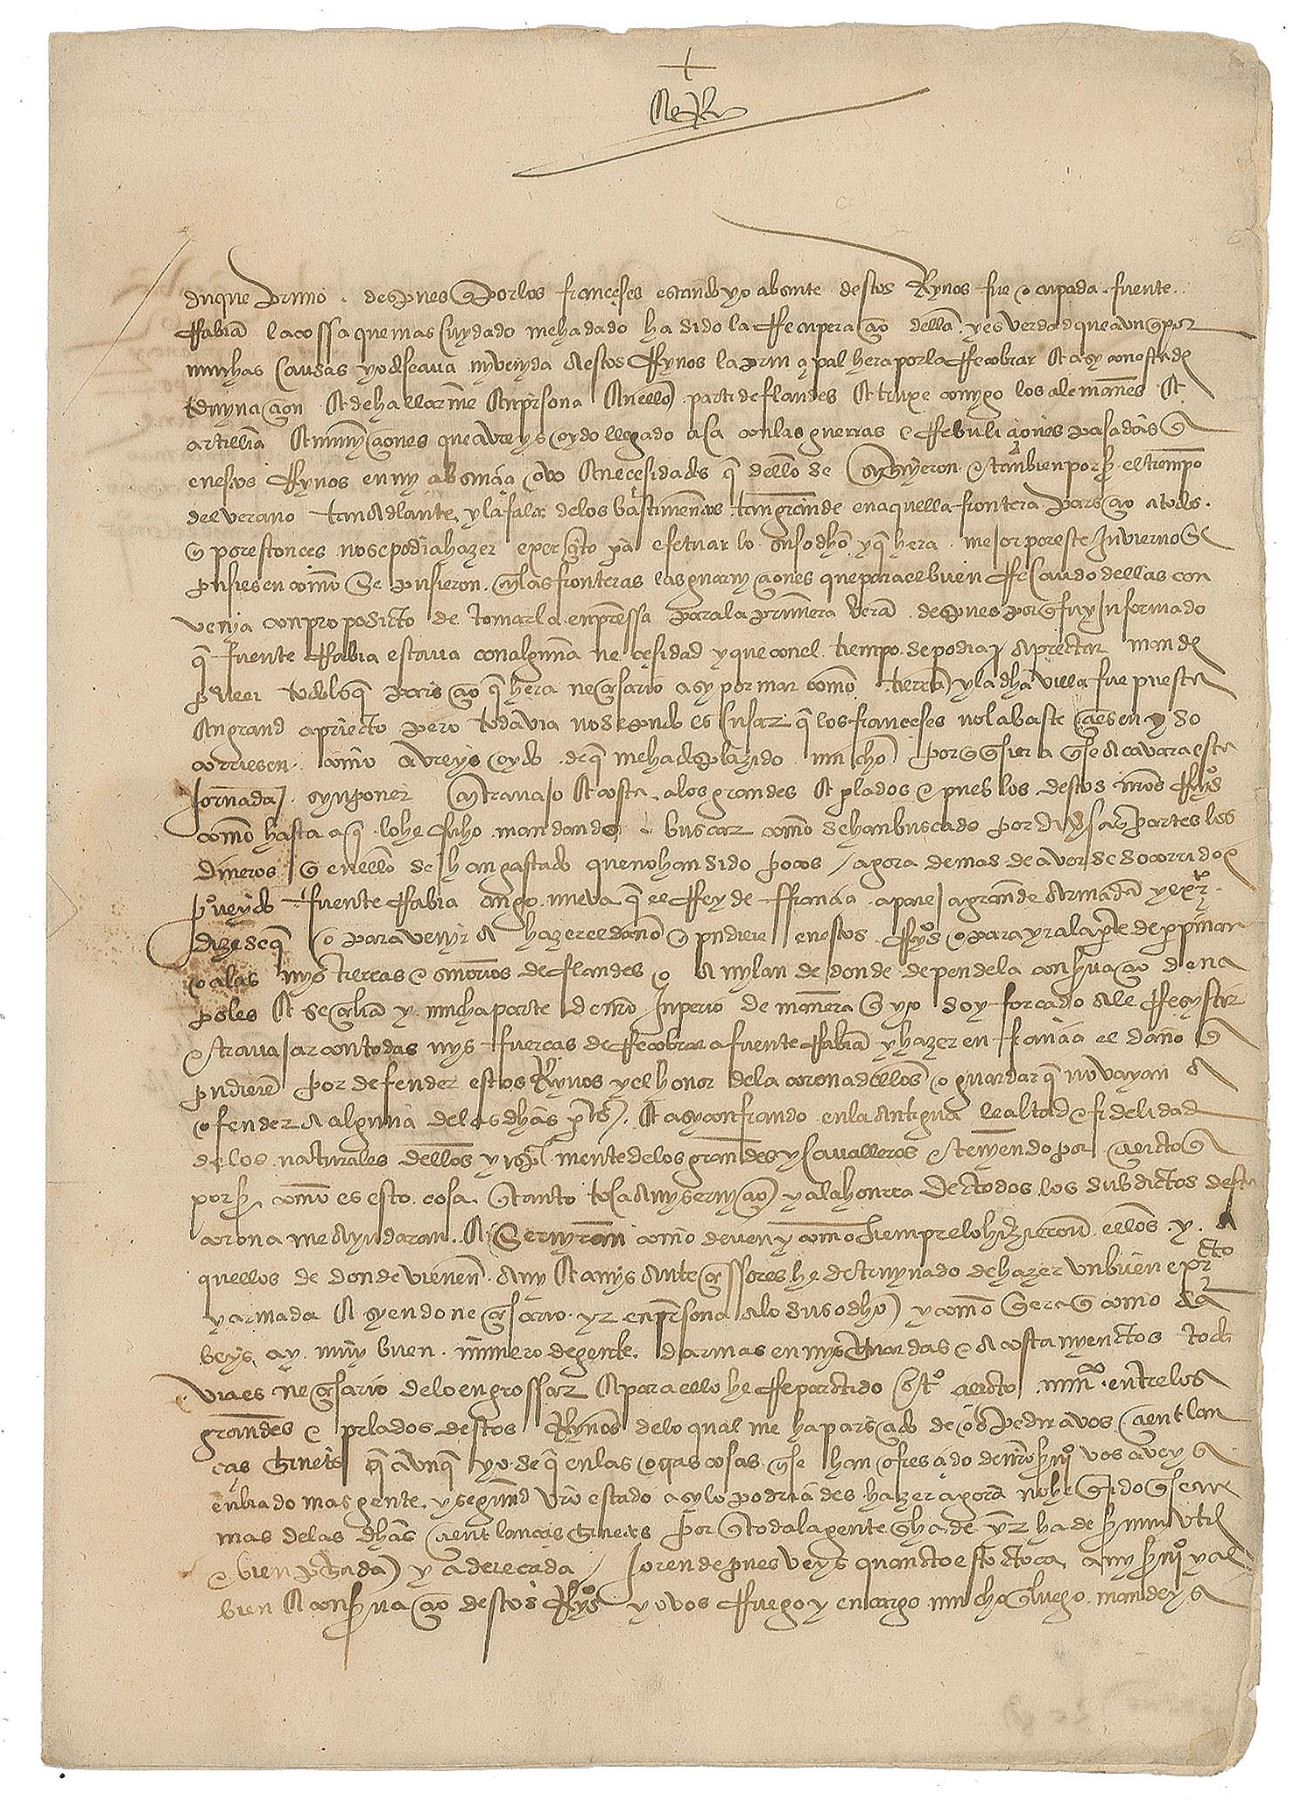 El Rey
duque primo. despues que por los franceses estando yo absente destos Rynos fue ocupada fuente
Rabia la cossa que mas cuydado me ha dado ha sido la Recuperaçio della. y es verdad que avnque por
muchas causas yo deseava my venyda a estos Rynos la prinçipal hera por la Recobrar et asy con esta de
t'mynaçion et de hallarme en persona en ello parti de flandes et truxe comigo los alemanes et
artilleria et munyçiones que avreys oydo llegado aca con las guerras e Rebuliçiones pasadas que
en estos Rynos en my absençia ovo e neçesidades que dello se syguyeron e tanbien por ser el tiempo
del verano tan adelante y la falta de los bastimentos tan grande en aquella frontera pareçio a todos.
que por estonces no se podia hazer exerçito para efetuar lo susodho y que hera mejor por este Invierno se
pusiesen como se pusieron. en las fronteras las guarnyçiones que para el buen Recaudo dellas con
venya con proposicto de tomar la enpressa para la primera vera. despues porque fuy Informado
que fuente Rabia estava con alguna neçesidad y que con el tiempo se podia apretar mande
proveer todo lo que pareçio que hera neçesario asy por mar como tierra y la dha villa fue puesta
en grand aprieto pero todavia no se pudo escusar que los françeses no la basteçiesen y so
corriesen. como avreys oydo. de que me ha desplazido mucho porque quisiera que se acavara esta
Jornada. syn poner en travajo et costa. a los grandes et perlados e pueblos destos mos Rynos
como hasta aqui lo he fecho mandando buscar como se han buscado por diversas partes los
dineros que en ello se han gastado que no han sido pocos / agora demas de aver se socorrido e
proveydo fuente Rabia tengo nueva que el Rey de françia apareja grande armada y exerto.
dizese que o para venyr a hazer el daño que pudiere en estos Rynos o para yr a la parte de perpinan
o a las mys tierras e señorios de flandes o a mylan de donde depende la conservaçio de na
poles et seçilia y mucha parte de nro Inperio de manera que yo soy forçado a le Resystir
e travajar con todas mys fuerças de Recobrar a fuente Rabia y hazer en françia el daño que
pudiere por defender estos Rynos y el honor de la corona dellos o guardar que no vayan a
ofender a alguna de las dhas partes. et asy confiando en la antigua lealtad e fidelidad
de los naturales dellos y espeçialmente de los grandes y cavalleros e tenyendo por çierto que
por ser como es esto cosa que tanto toca a my serviçio y a la honrra de todos los subdictos desta
corona me ayudaran. e servyran como deven y como siempre lo hizieron ellos. y. a
quellos de donde vienen. a my et a mys anteçessores he determynado de hazer vn buen exerçto
y armada e syendo neçesario. yr en persona a lo susodho y como quiera que como sa
beys. ay. muy buen. numero de gente. d armas en mys guardas e acostamyentos toda
via es neçesario de lo engrossar e para ello he Repartido çierto numo. entre los
grandes e perlados destos Rynos de lo qual me ha pareçido de os pedir a vos çient lan
ças ginetas que avnque yo se que en las otras cosas que se han ofresçido de nro serviçio vos aveys
enbiado mas gente. y segund vro estado asy lo podriades hazer agora no he querido que sean
mas de las dhas çient lanças ginetas por que toda la gente que ha de yr ha de ser muy vtil
e bien tratada y adereçada / por ende pues veys quanto esto toca a my serviçio y al
bien et conservaçio destos Rynos yo vos Ruego y encargo mucho que luego. mandeys